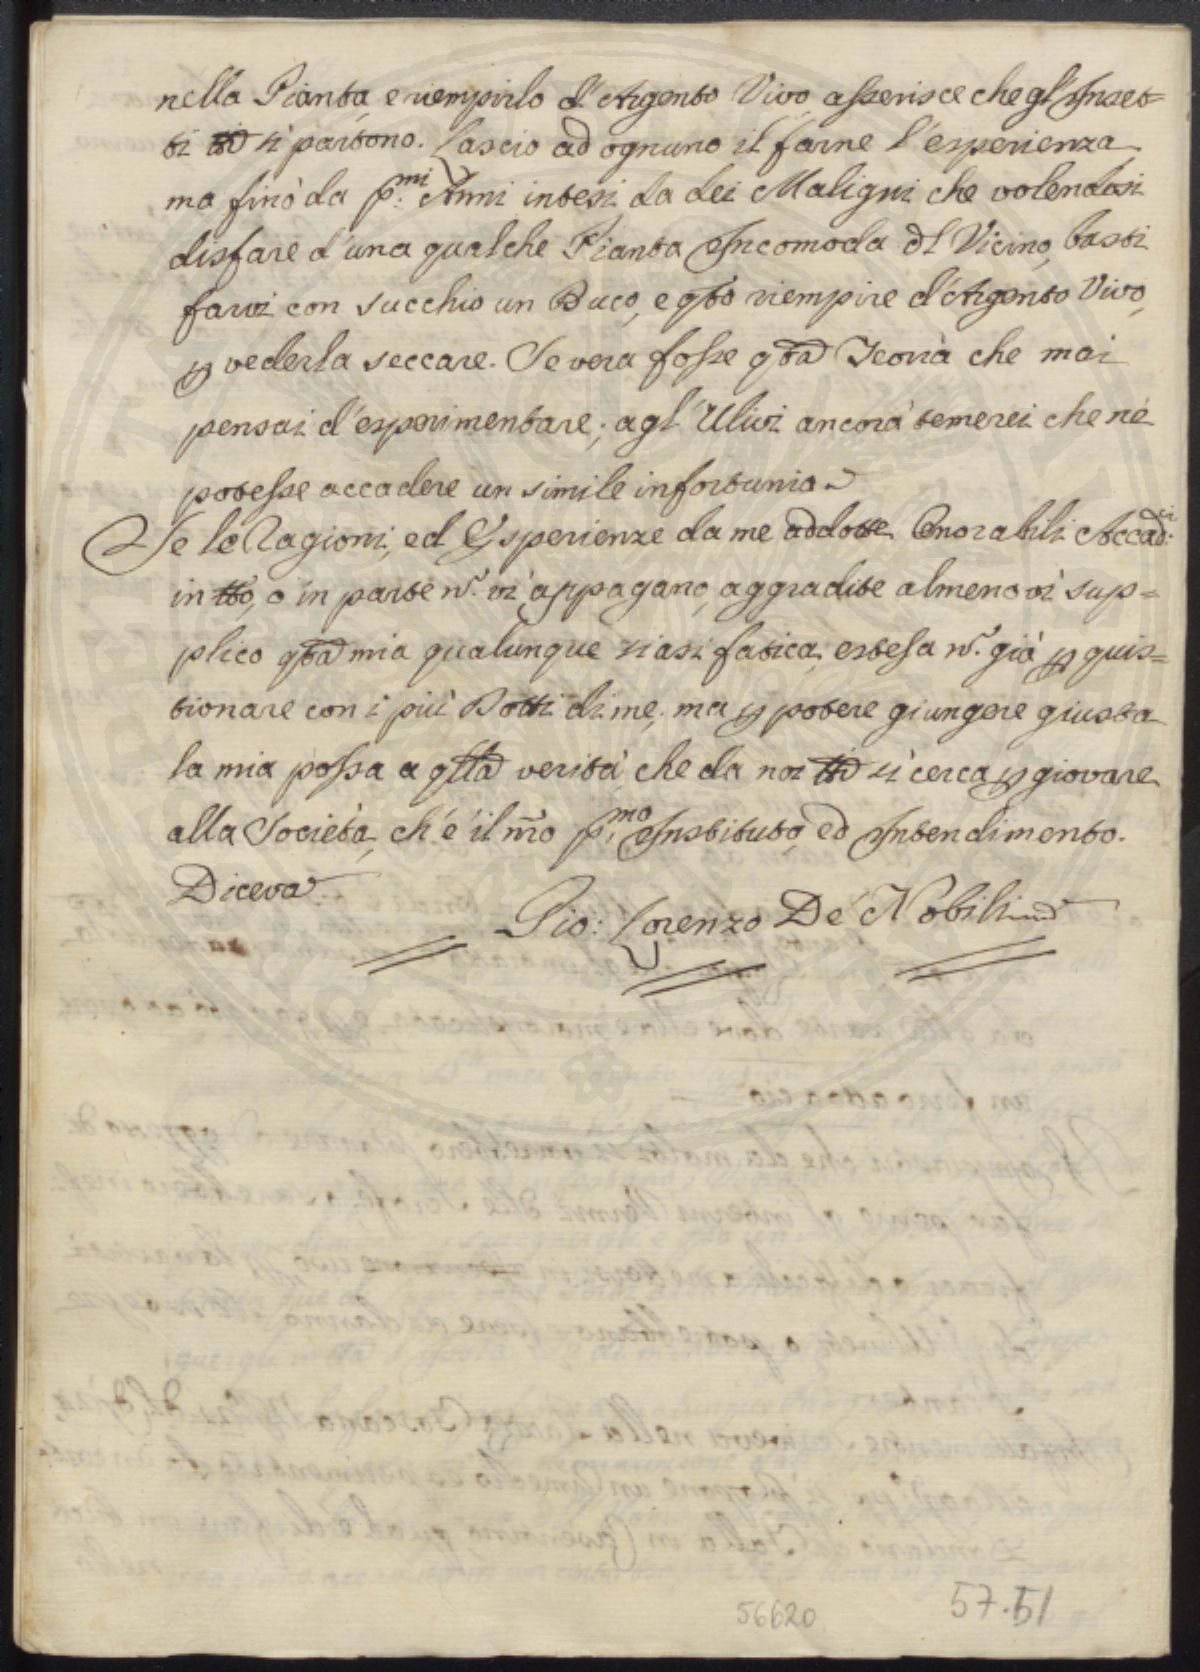 nella Pianta, e riempirlo d'Argento Vivo, asserisce che gl'Inset=
ti tti si partono. Lascio ad ognuno il farne l'esperienza
ma fino da p.mi Anni intesi da dei Maligni che volendosi
disfare d'una qualche Pianta Incomoda dl Vicino, basti
farvi con succhio un Buco, e qto riempire d'Argento Vivo,
p vederla seccare. Se vera fosse qta Teoria che mai
pensai d'esperimentare; agl'Ulivi ancora temerei che ne
potesse accadere un simile infortunio.
Se le Ragioni, ed Esperienze da me addotte Onorabili Accad.ci
in tto, o in parte n. vi appagano, aggradite almeno vi sup=
plico qta mia qualunque siasi fatica, estesa n. già p quis=
tionare con i più Dotti di me, ma p potere giungere giusta
la mia possa a qlla verità, che da noi tti si cerca p giovare
alla Società, ch'è il nro p.mo Instituto, ed Intendimento.
Diceva
Gio: Lorenzo De' Nobili
56620
57.51